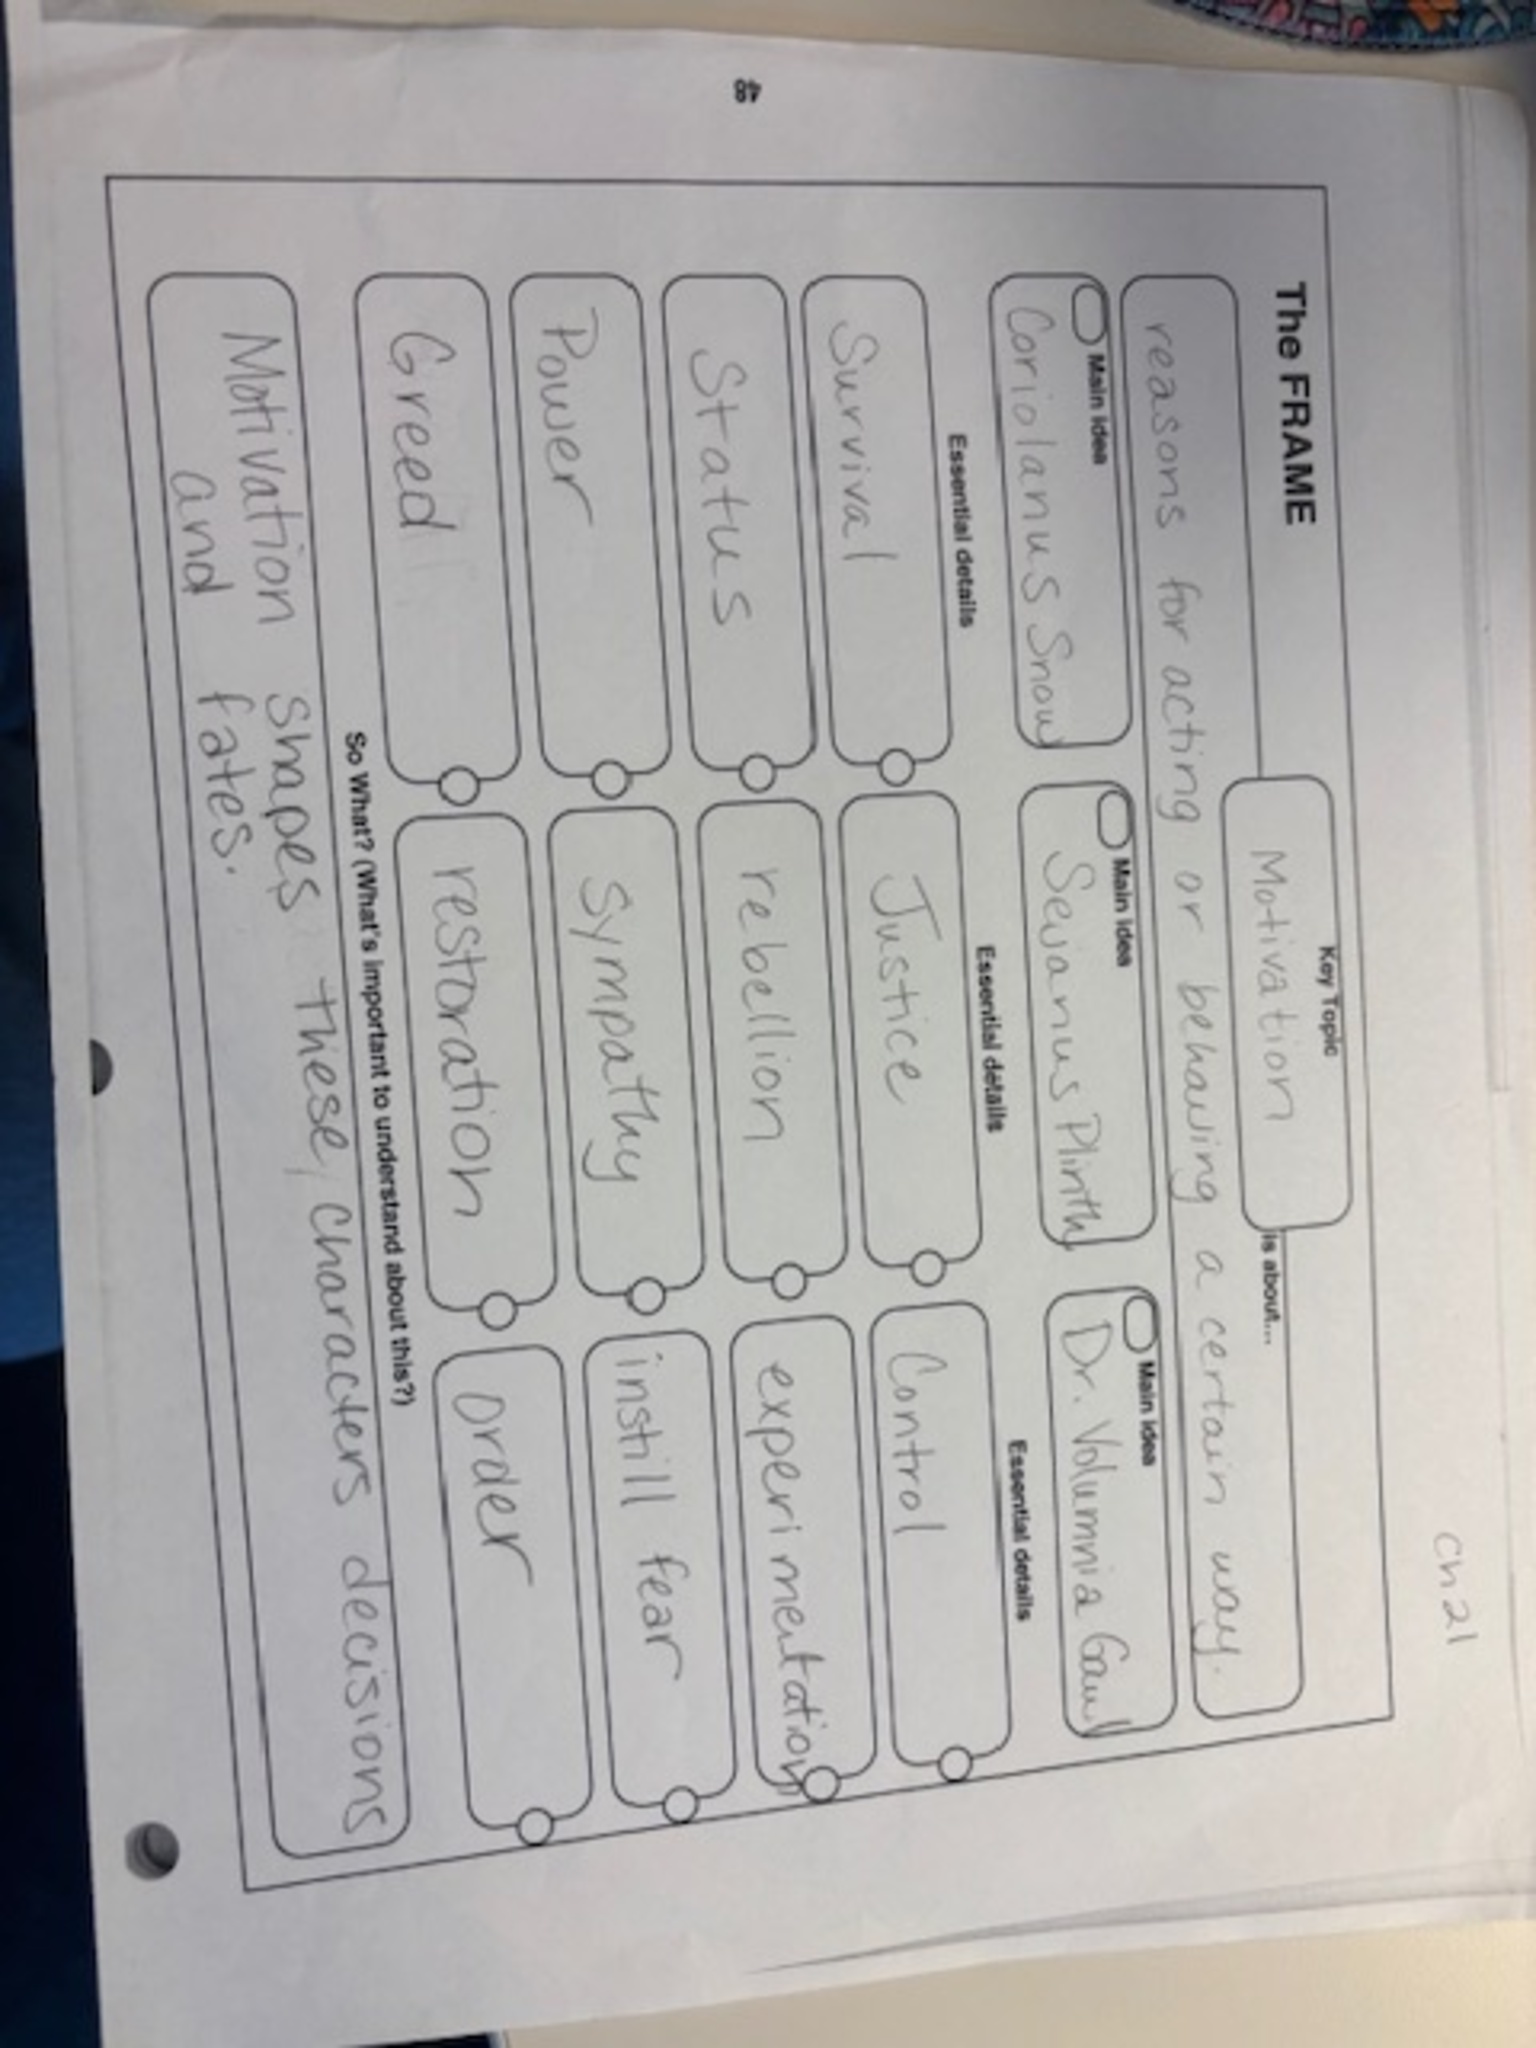 Ch 21
The FRAME
Key Topic
Motivation
is about...
reasons for acting or behaving a certain way.
Main idea
Coriolanus Snow
Main idea
Sejanus Plinth
Main idea
Dr. Volumnia Gaul
Essential details
Essential details
Essential details
Survival
Justice
Control
Status
rebellion
experimentation
Power
Sympathy
instill fear
Greed
restoration
order
So What? (What's important to understand about this?)
Motivation shapes these characters decisions
and fates.
48